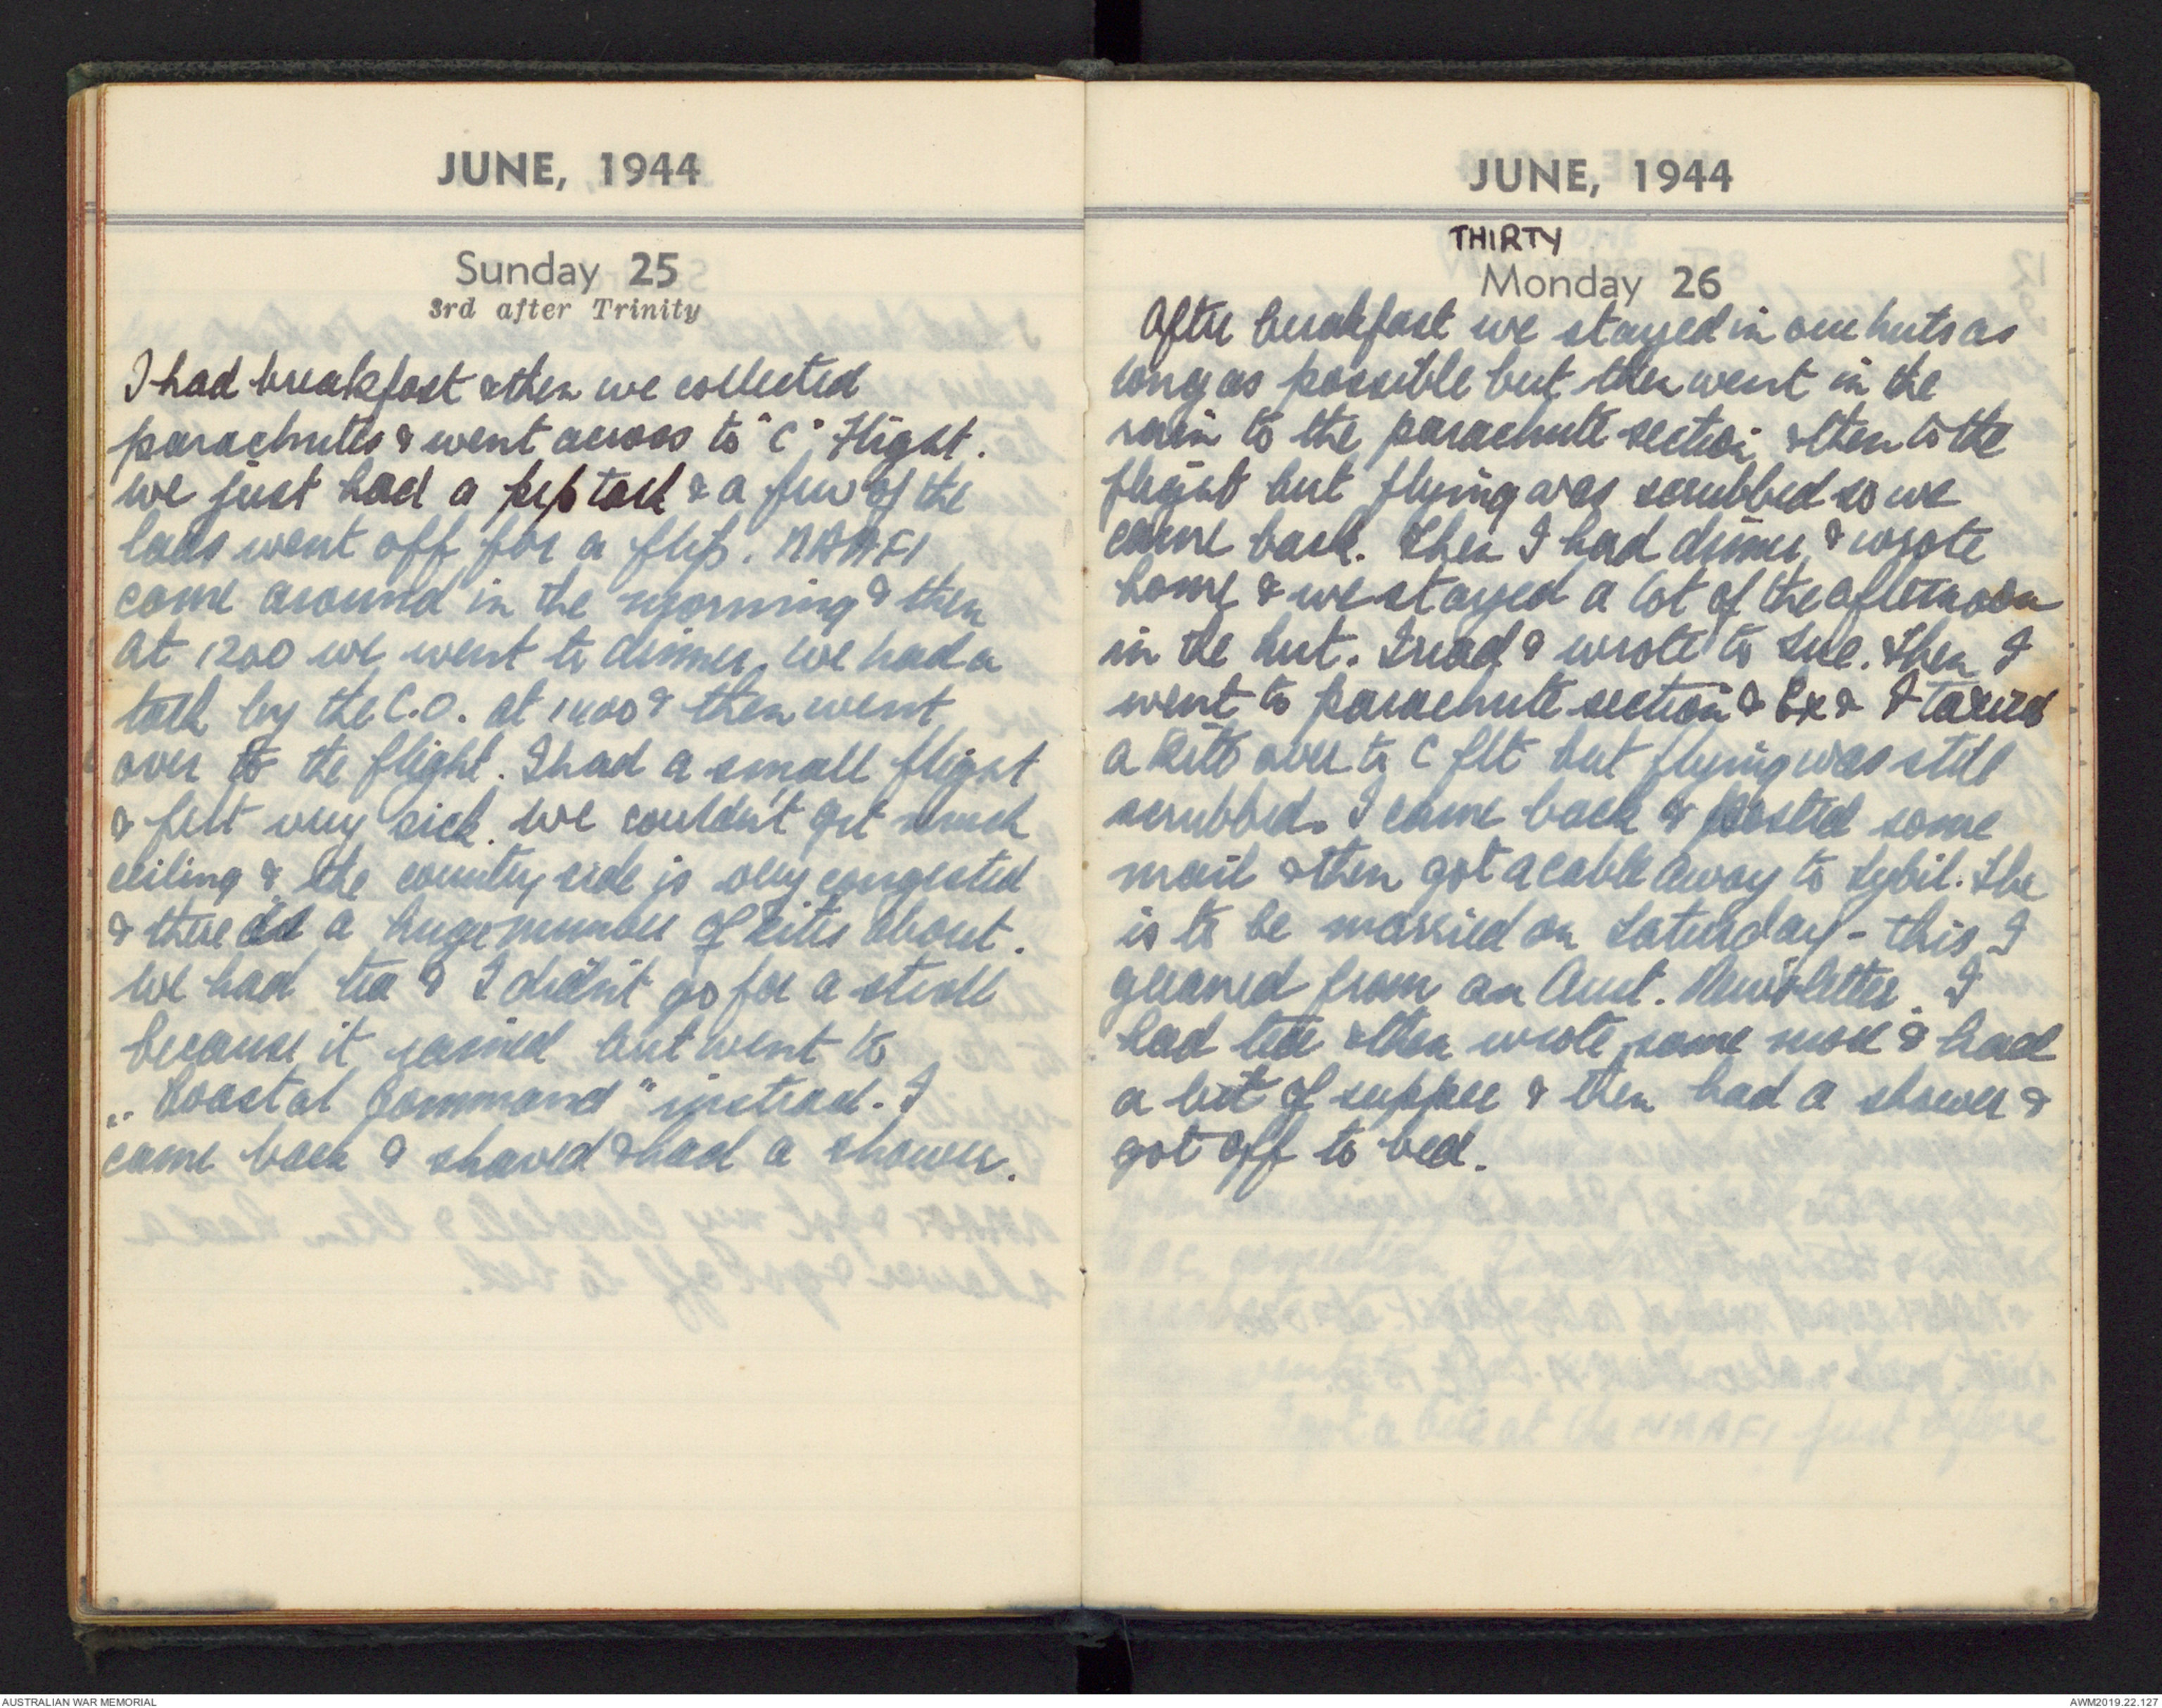 JUNE, 1944
Sunday 25
3rd after Trinity
I had breakfast & then we collected
parachutes & went across to "C" Flight.
we just had a pep talk & a few of the
lads went off for a flip. NAAFI
came around in the morning & then
at 1200 we went to dinner. we had a
talk by the C.O. at 1400 & then went
over to the flight. I had a small flight
& felt very sick. we couldn't get much
ceiling & the country side is very congested
& there is a huge number of kites about.
We had tea & I didn't go for a stroll
because it rained but went to
"Coastal Command" instead. I
came back & shaved & had a shower.
JUNE, 1944
THIRTY
Monday 26
After breakfast we stayed in our huts as
long as possible but then went in the
rain to the parachute section & then to the
flight but flying was scrubbed so we
came back. Then I had dinner & wrote
home & we stayed a lot of the afternoon
in the hut. I read & wrote to Sue. Then I
went to parachute section & & I taxied
a kite over to C flt but flying was still
scrubbed. I came back & posted some
mail & then got a cable away to Sybil. She
is to be married on Saturday - this I
gleaned from an Aust. Newsletter. I
had tea & then wrote some more & had
a bit of supper & then had a shower &
got off to bed.
AUSTRALIAN WAR MEMORIAL
AWM2019.22.127